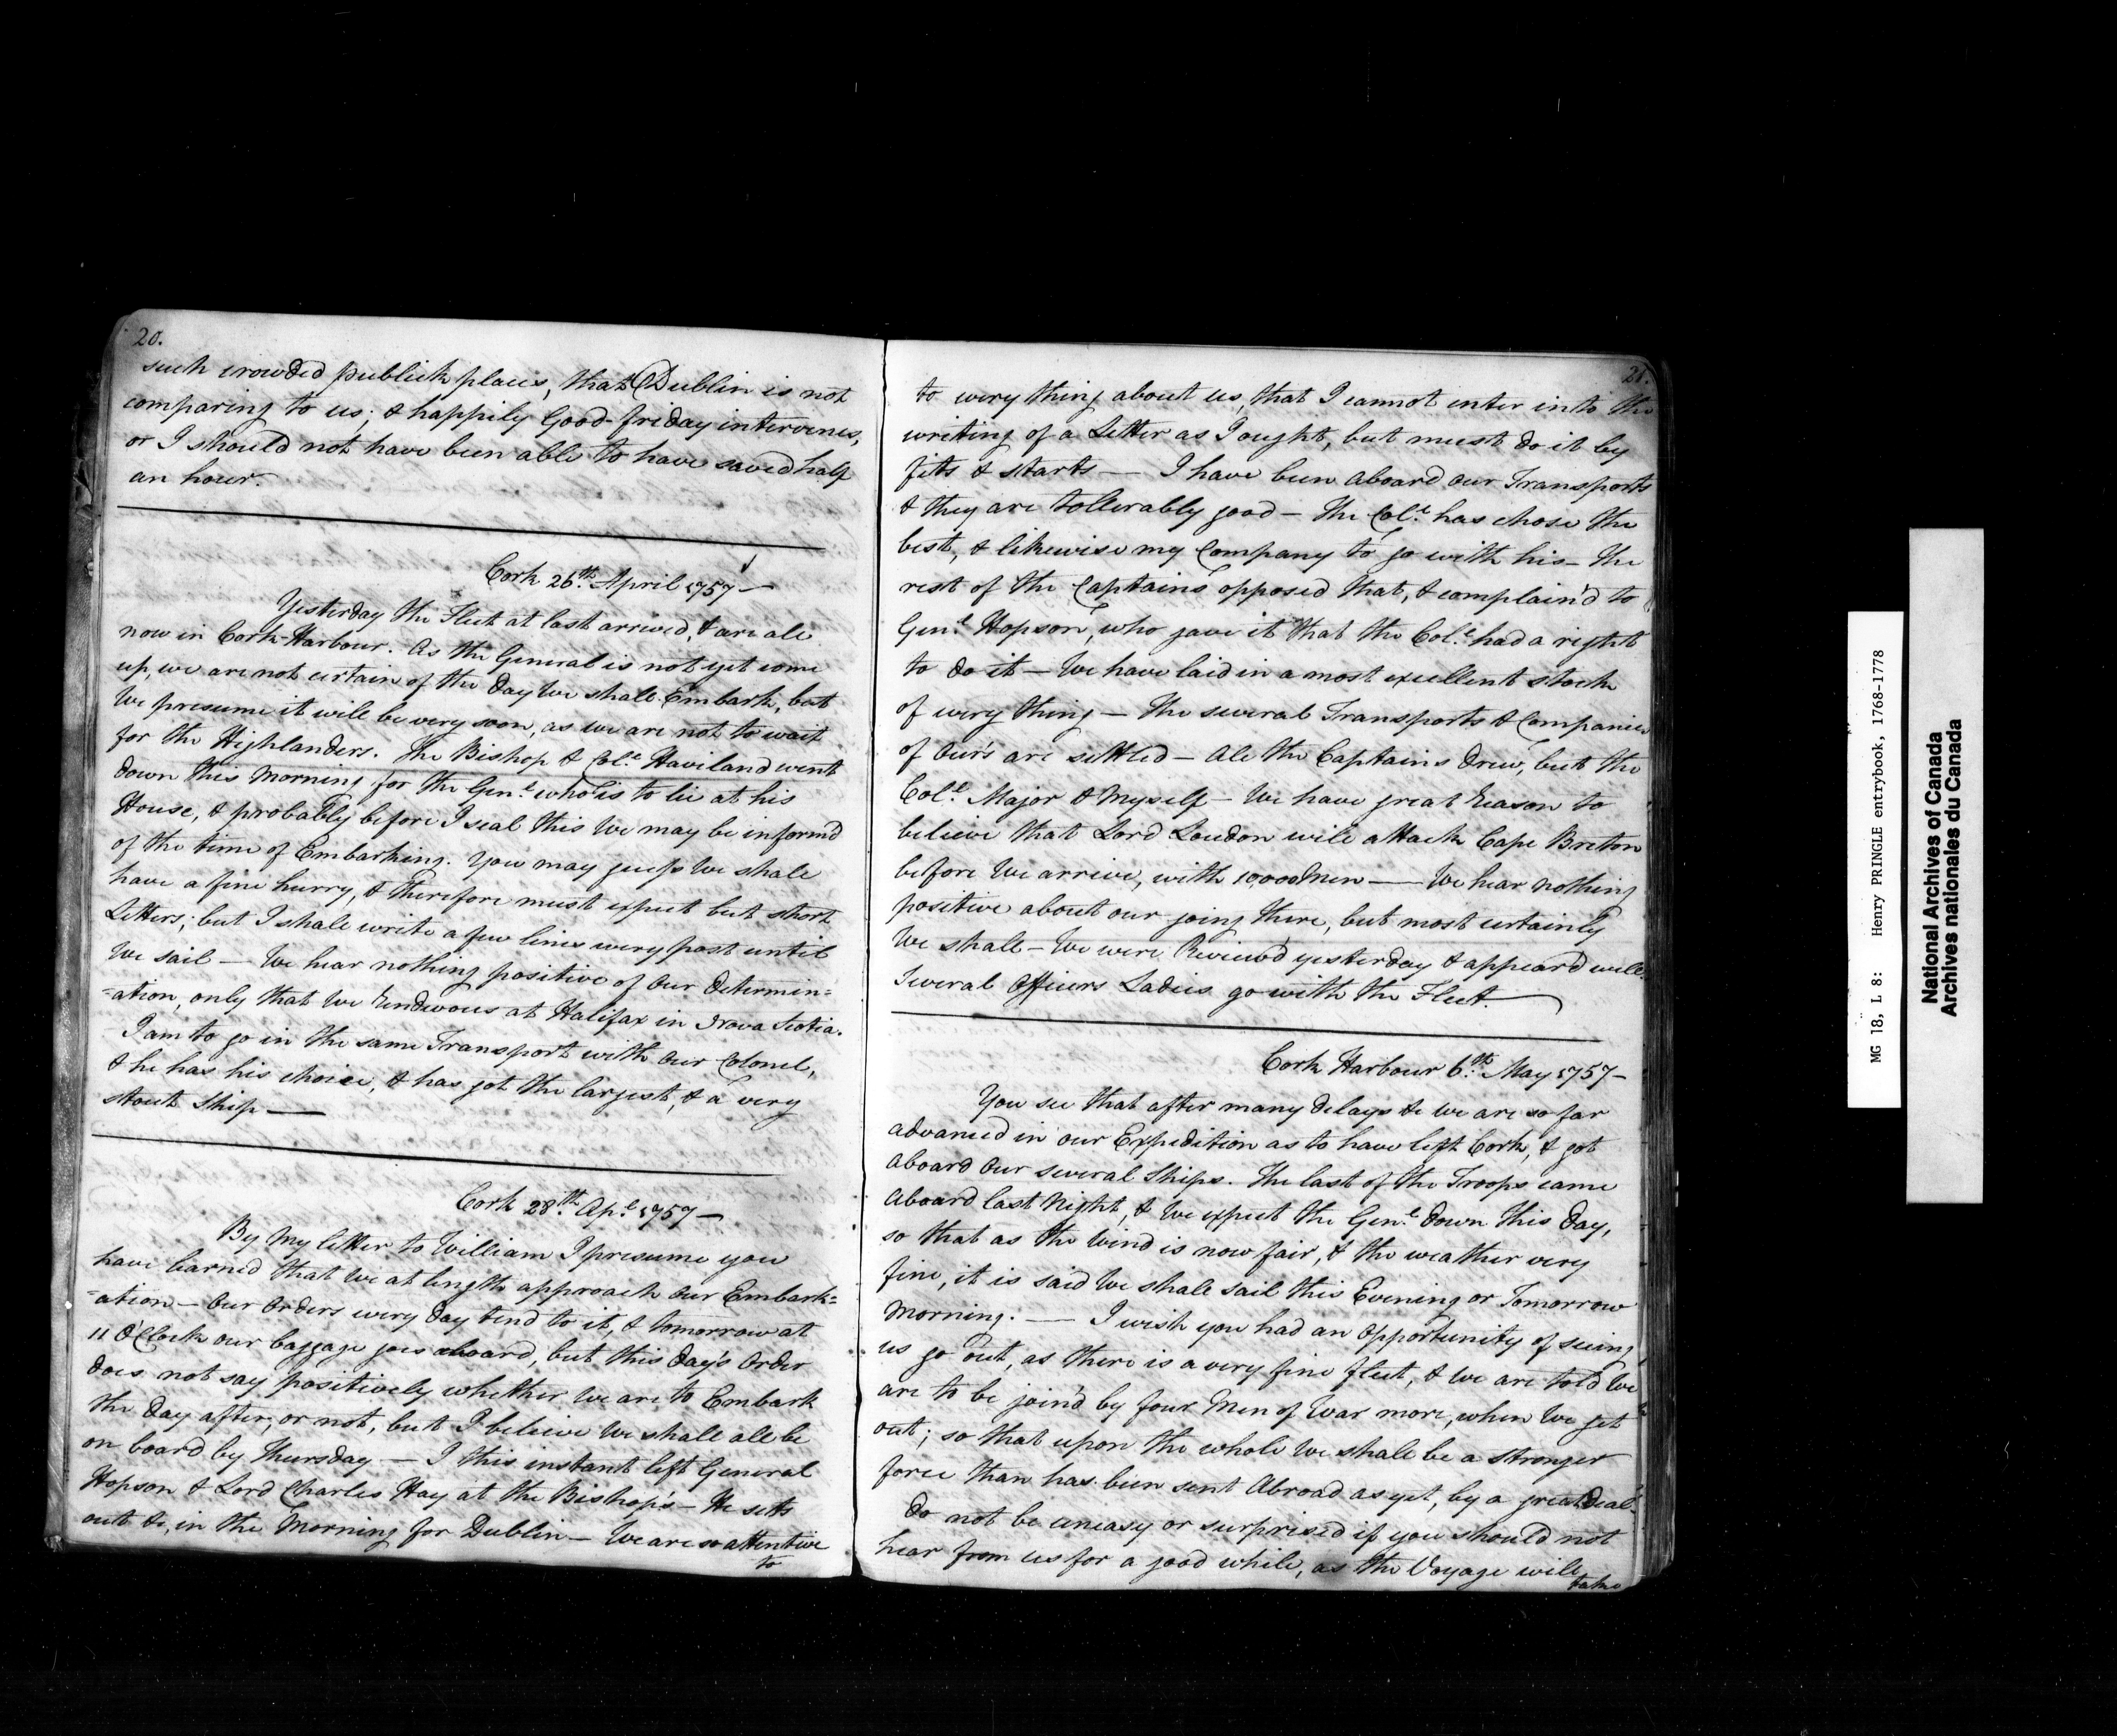 20.
such crowded publick places, that Dublin is not
comparing to us; & happily Good-friday intervenes,
or I should not have been able to have saved half
an hour.
Cork 26th. April 1757 —
Yesterday the Fleet at last arrived, & are all
now in Cork-Harbour. As the General is not yet come
up, we are not certain of the Day We shall Embark, but
We presume it will be very soon, as we are not to wait
for the Highlanders. The Bishop & Col.l Haviland went
down this Morning for the Gen.l who is to lie at his
House, & probably before I seal this We may be inform'd
of the time of Embarking. You may guess We shall
have a fine hurry, & therefore must expect but short
Letters; but I shall write a few lines every post until
We sail — We hear nothing positive of Our Determin=
=ation, only that We Rendevous at Halifax in Nova Scotia.
I am to go in the same Transport with Our Colonel,
& he has his choice, & has got the largest, & a very
stout Ship —
Cork 28th. Ap.l 1757 —
By My letter to William I presume you
have learned that We at length approach Our Embark=
=ation — Our Orders every Day tend to it, & tomorrow at
11 O'Clock our baggage goes aboard, but this day's Order
does not say positively whether We are to Embark
the Day after, or not, but I believe We shall all be
on board by Thursday — I this instant left General
Hopson & Lord Charles Hay at the Bishop's — He sets
out &c, in the Morning for Dublin — We are so attentive
to
21.
to every thing about us, that I cannot enter into the
writing of a Letter as I ought, but must do it by
fits & starts — I have been aboard our Transports
& they are tollerably good — The Col.l has chose the
best, & likewise my Company to go with his — The
rest of the Captains opposed that, & complain'd to
Gen.l Hopson, who gave it that the Col.l had a right
to do it — We have laid in a most excellent stock
of every thing — The several Transports & Companies
of Our's are settled — All the Captains Drew, but the
Col.l Major & Myself — We have great Reason to
believe that Lord Loudon will attack Cape Breton
before We arrive, with 10,000 Men — We hear nothing
positive about our going there, but most certainly
We shall — We were Reviewd yesterday & appeard well.
Several Officers Ladies go with the Fleet.
Cork Harbour 6th. May 1757 —
You see that after many delays &c We are so far
advanced in our Expedition as to have left Cork, & got
aboard Our several Ships. The last of the Troops came
aboard last Night, & We expect the Gen.l down this Day,
so that as the Wind is now fair, & the weather very
fine, it is said We shall sail this Evening or Tomorrow
Morning. — I wish you had an Opportunity of seeing
us go out, as there is a very fine fleet, & We are told We
are to be join'd by four Men of War more, when We get
out; so that upon the whole We shall be a stronger
force than has been sent Abroad as yet, by a great Deal.
Do not be uneasy or surprised if you should not
hear from us for a good while, as the Voyage will
take
MG 18, L 8: Henry PRINGLE entrybook, 1768-1778
National Archives of Canada
Archives nationales du Canada